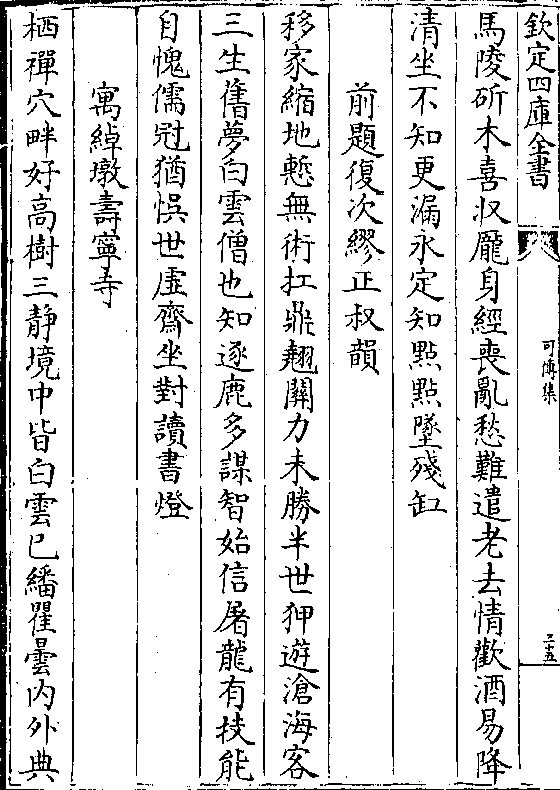 欽定四庫全書
可傳集
三五
馬陵斫木喜收龐身經喪亂愁難遣老去情歡酒易降
清坐不知更漏永定知點點墜殘缸
前題復次繆正叔韻
移家縮地慙無術扛鼎翹關力未勝半世狎遊滄海客
三生舊夢白雲僧也知逐鹿多謀智始信屠龍有技能
自愧儒冠猶悞世虛齋坐對讀書燈
寓綽墩壽寧寺
栖禪穴畔好高樹三靜境中皆白雲已繙瞿曇内外典